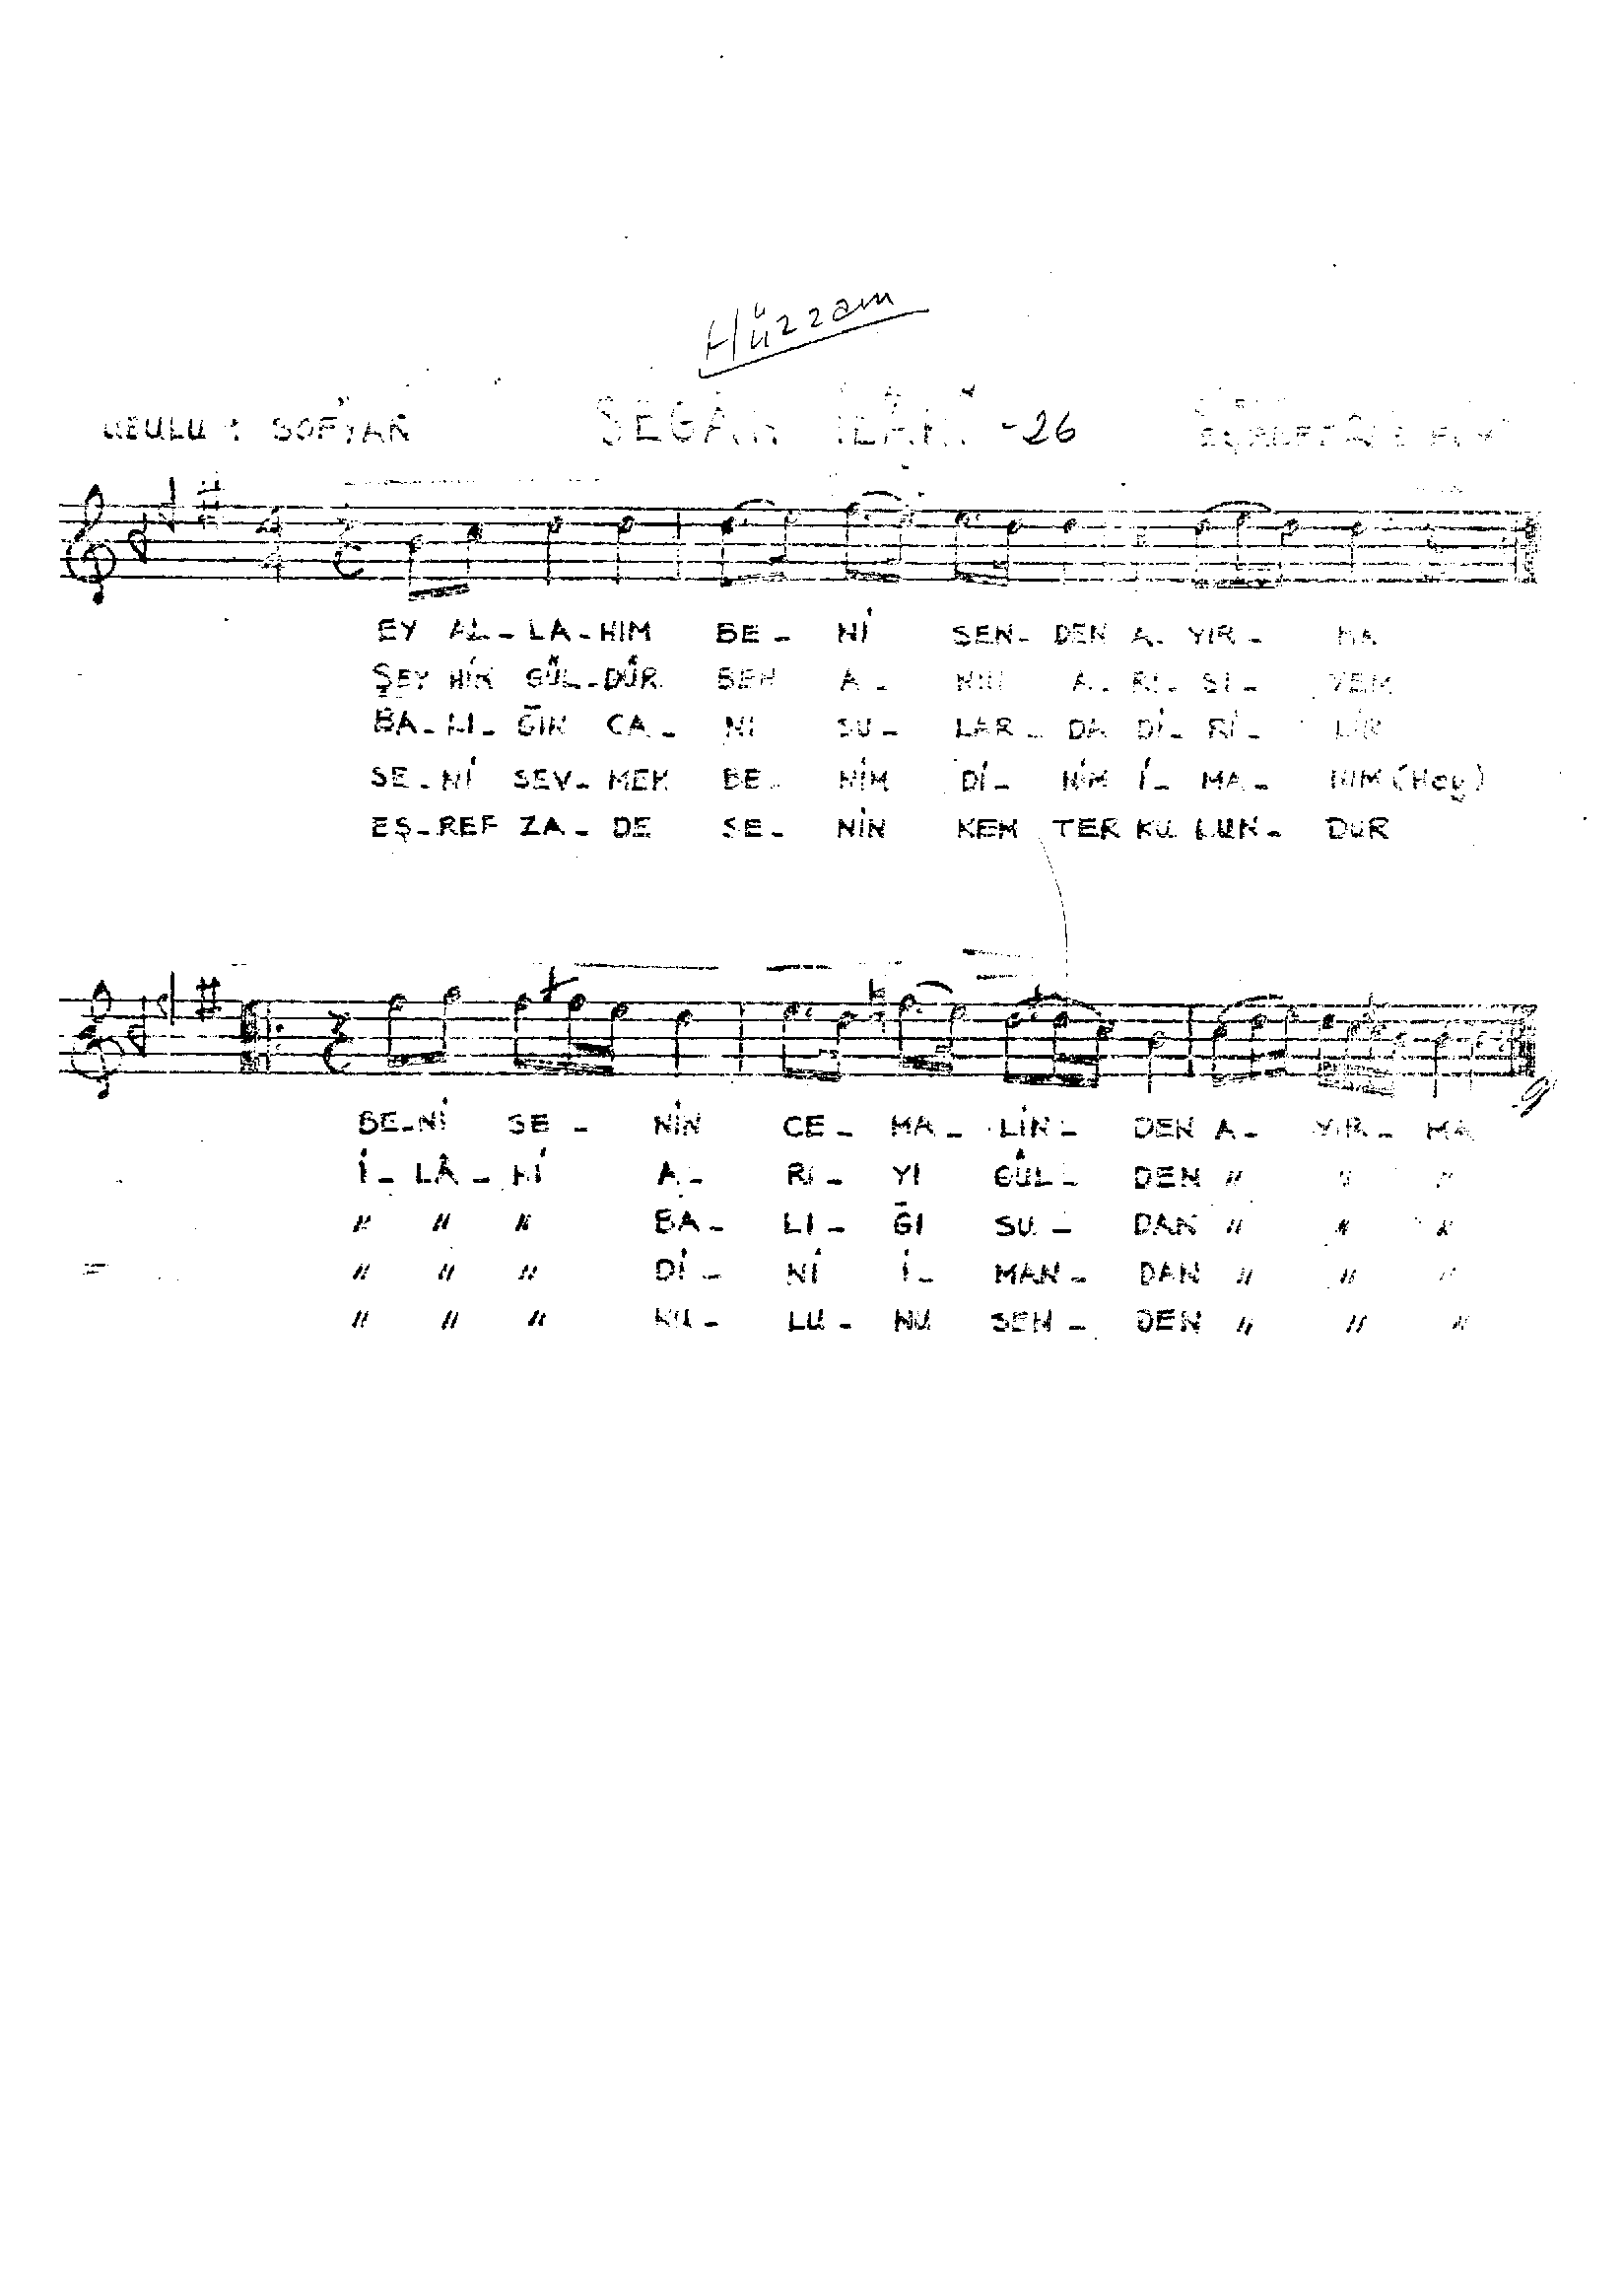 Hüzzam
USULU : SOFYAN SEGÂH İLÂHİ -26
EY AL-LA-HIM BE-Nİ SEN-DEN A-YIR-MA
ŞEY HİM GÜL-DÜR BEN A-NIN A-RI-SI-YEM
BA-LI-ĞIN CA-NI SU-LAR-DA Dİ-Rİ-LİR
SE-Nİ SEV-MEK BE-NİM Dİ-NİM İ-MA-NIM (Hey)
EŞ-REF ZA-DE SE-NİN KEM TER KU LUN-DUR
BE-Nİ SE-NİN CE-MA-LİN-DEN A-YIR-MA
İ-LÂ-Hİ A-RI-YI GÜL-DEN " " "
" " " BA-LI-ĞI SU-DAN " " "
" " " Dİ-Nİ İ-MAN-DAN " " "
" " " KU-LU-NU SEN-DEN " " "